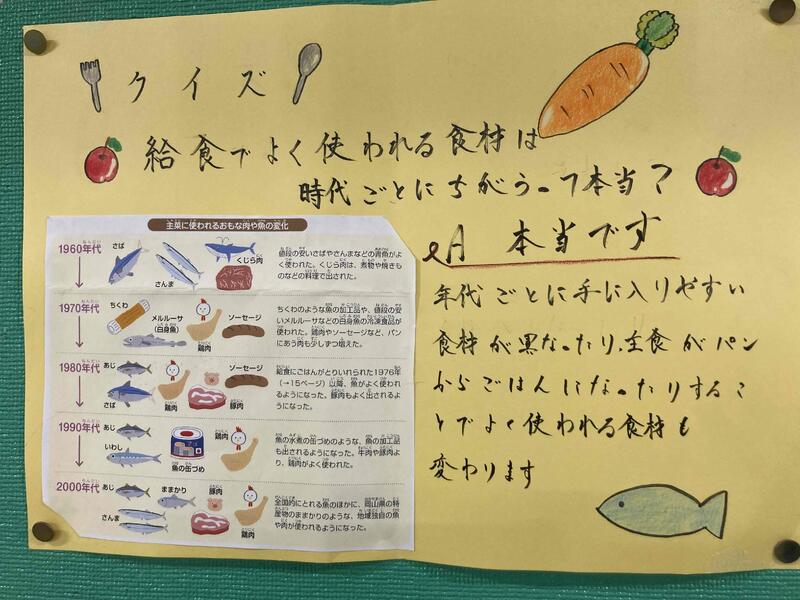 クイズ
給食でよく使われる食材は
時代ごとにちがうって本当?
A 本当です
年代ごとに手に入りやすい
食材が異なったり、主食がパン
からごはんになったりするこ
とでよく使われる食材も
変わります
主菜に使われるおもな肉や魚の変化
1960年代
さば
さんま
くじら肉
値段の安いさばやさんまなどの青魚がよ
く使われた。くじら肉は、煮物や焼きも
のなどの料理で出された。
1970年代
ちくわ
メルルーサ
(白身魚)
鶏肉
ソーセージ
ちくわのような魚の加工品や、値段の安
いメルルーサなどの白身魚の冷凍食品が
使われた。鶏肉やソーセージなど、パン
にあう肉も少しずつ増えた。
1980年代
あじ
さば
鶏肉
豚肉
ソーセージ
給食にごはんがとりいれられた1976年
(→15ページ)以降、魚がよく使われ
るようになった。豚肉もよく出されるよ
うになった。
1990年代
あじ
いわし
魚の缶づめ
鶏肉
魚の水煮の缶づめのような、魚の加工品
も出されるようになった。牛肉や豚肉よ
り、鶏肉がよく使われた。
2000年代
あじ
ままかり
さんま
豚肉
鶏肉
全国的にとれる魚のほかに、岡山県の特
産物のままかりのような、地域独自の魚
や肉が使われるようになった。